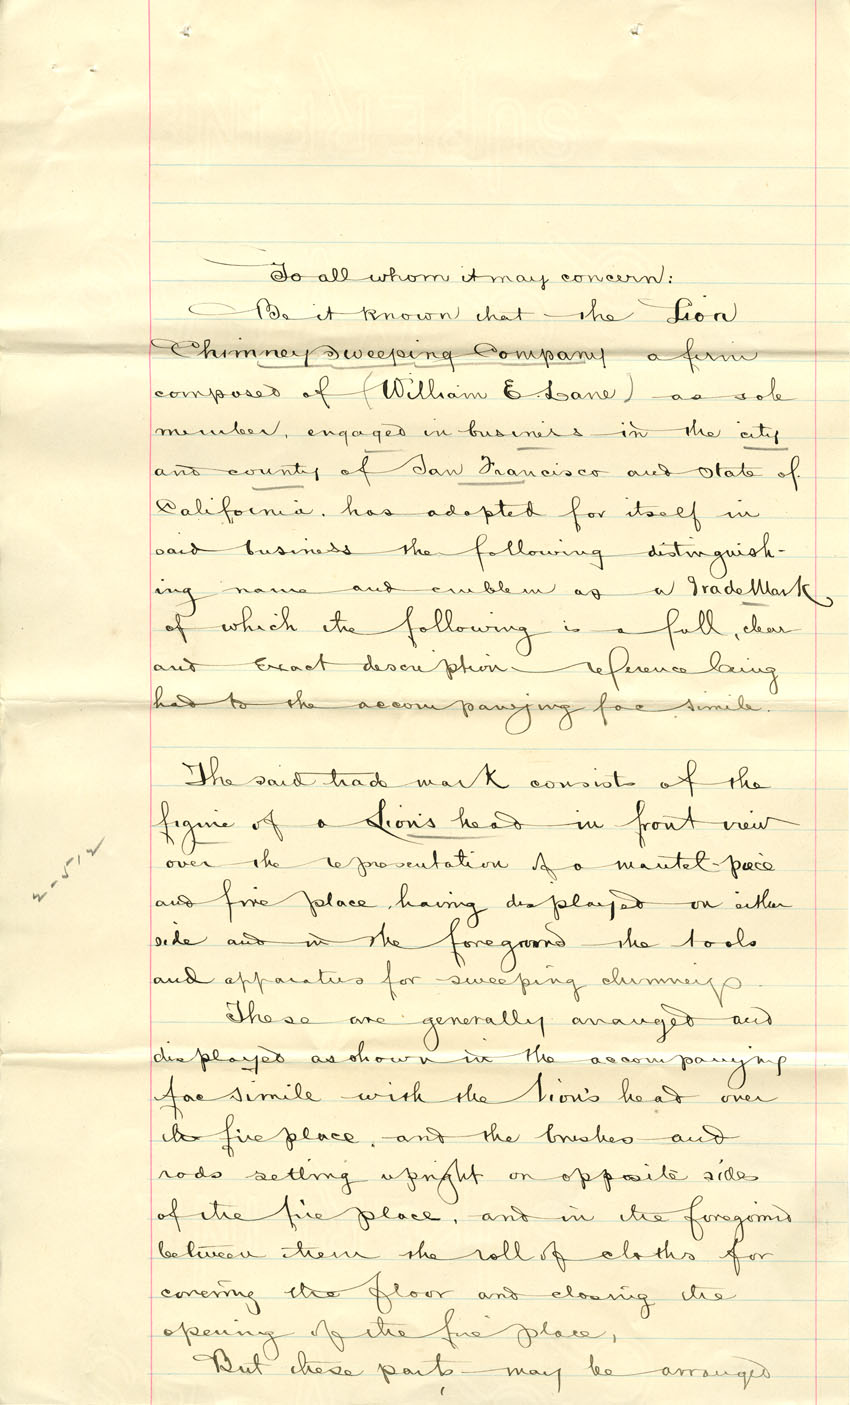 To all whom it may concern:
Be it known that the Lion
Chimney sweeping Company a firm
composed of (William E. Lane) as sole
member, engaged in business in the city
and county of San Francisco and State of
California, has adopted for itself in
said business the following distinguish-
ing name and emblem as a Trade Mark
of which the following is a full, clear
and Exact description reference being
had to the accompanying fac simile.
The said trade mark consists of the
figure of a Lion's head in front view
over the representation of a mantel piece
and fire place, having displayed on either
side and in the foreground the tools
and apparatus for sweeping chimneys.
These are generally arranged and
displayed as shown in the accompanying
fac simile with the lion's head over
the fire place, and the brushes and
rods setting upright on opposite sides
of the fire place, and in the foreground
between them the roll of cloths for
covering the floor and closing the
opening of the fire place,
But these parts may be arranged
2-512